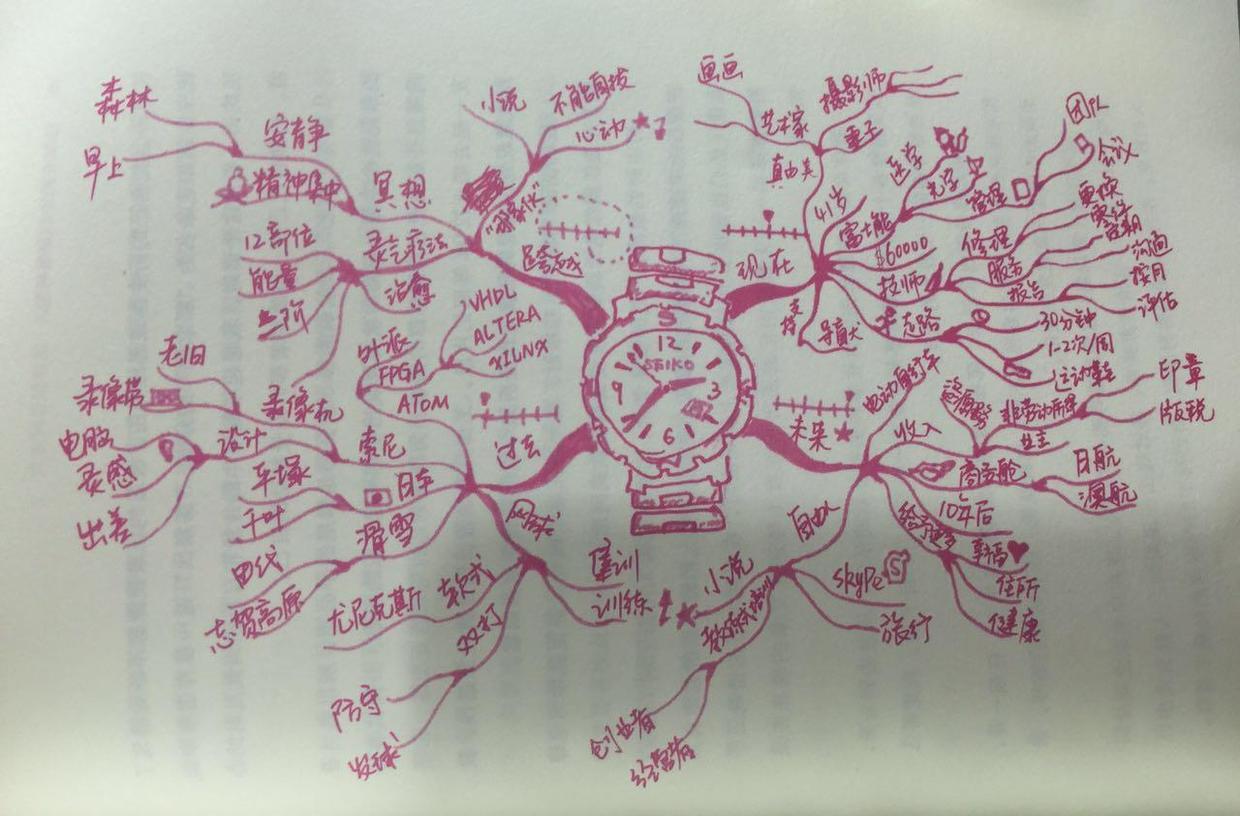 森林
早上
安静
精神集中
冥想
12部位
能量
灵气疗法
治愈
小说
不能自拔
心动
画画
艺术家
摄影师
重子
真由美
41岁
富士能
$60000
医学
光学
管理
团队
会议
现在
修理
更换
技师
服务
报告
沟通
按月
评估
支持
导盲犬
走路
30分钟
1-2次/周
运动鞋
外派
FPGA
VHDL
ALTERA
XILNX
ATOM
12
SEIKO
9
3
6
老旧
录像带
录像机
电脑
设计
灵感
出差
索尼
过去
平塚
千叶
日本
滑雪
田代
志贺高原
网球
集训
训练
软式
尤尼克斯
双打
防守
发球
未来
电动自行车
收入
非劳动所得
印章
版税
业主
商务舱
日航
澳航
10年后
幸福
住所
健康
自由人
小说
Skype
S
旅行
教练式培训
创业者
经营者